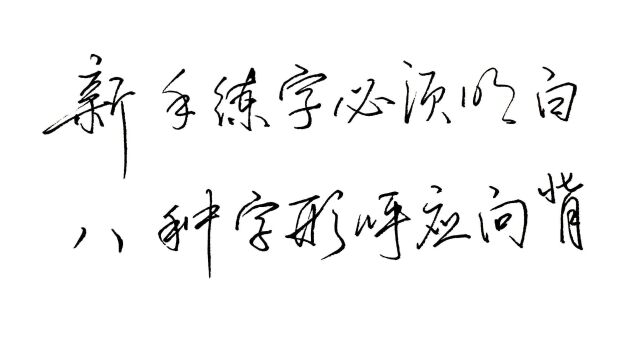 新手练字必须明白
八种字形呼应向背